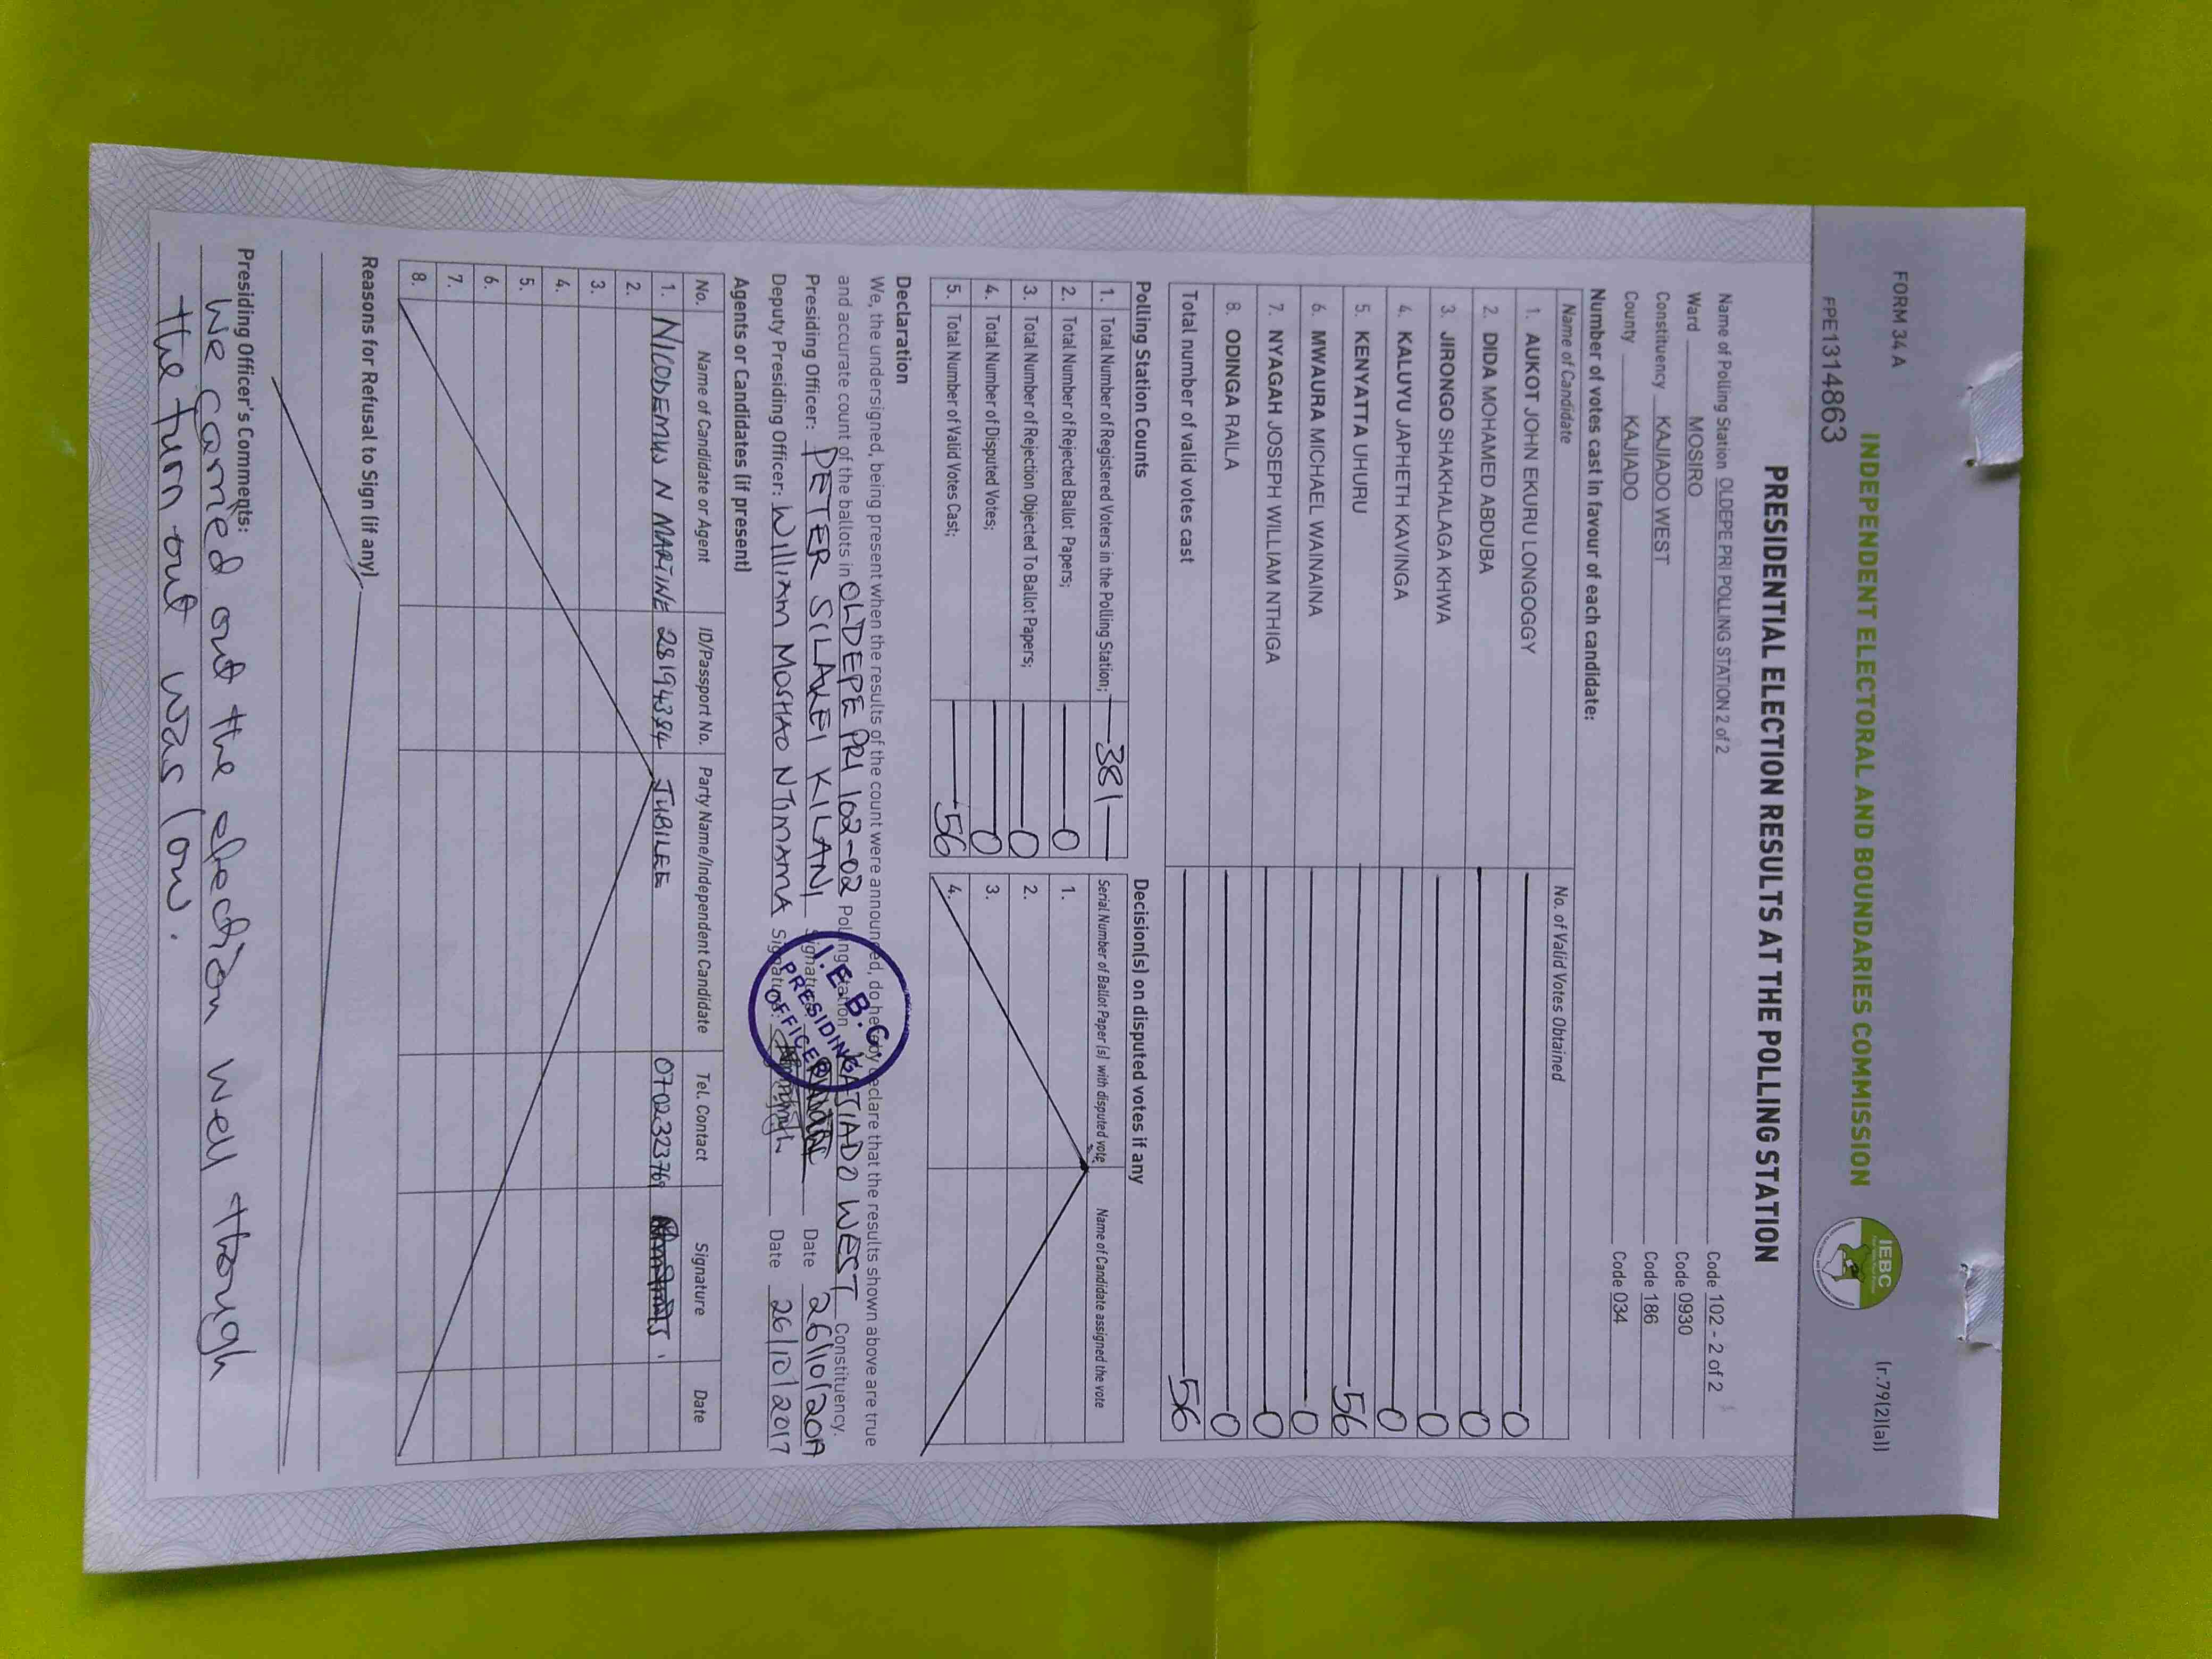 FORM 34 A
(r.79(2)(a))
FPE1314863
INDEPENDENT ELECTORAL AND BOUNDARIES COMMISSION
IEBC
PRESIDENTIAL ELECTION RESULTS AT THE POLLING STATION
Name of Polling Station OLDEPE PRI POLLING STATION 2 of 2 Code 102 - 2 of 2
Ward MOSIRO Code 0930
Constituency KAJIADO WEST Code 186
County KAJIADO Code 034
Number of votes cast in favour of each candidate:
Name of Candidate No. of Valid Votes Obtained
1. AUKOT JOHN EKURU LONGOGGY 0
2. DIDA MOHAMED ABDUBA 0
3. JIRONGO SHAKHALAGA KHWA 0
4. KALUYU JAPHETH KAVINGA 0
5. KENYATTA UHURU 56
6. MWAURA MICHAEL WAINAINA 0
7. NYAGAH JOSEPH WILLIAM NTHIGA 0
8. ODINGA RAILA 0
Total number of valid votes cast 56
Polling Station Counts Decision(s) on disputed votes if any
1. Total Number of Registered Voters in the Polling Station; 381 Serial Number of Ballot Paper (s) with disputed vote Name of Candidate assigned the vote
2. Total Number of Rejected Ballot Papers; 0 1.
3. Total Number of Rejection Objected To Ballot Papers; 0 2.
4. Total Number of Disputed Votes; 0 3.
5. Total Number of Valid Votes Cast; 56 4.
Declaration
We, the undersigned, being present when the results of the count were announced, do hereby declare that the results shown above are true
and accurate count of the ballots in OLDEPE PRI 102-02 Polling Station KAJIADO WEST Constituency.
Presiding Officer: PETER SILAKEI KILANI Signature: Date 26/10/2017
Deputy Presiding Officer: WILLIAM MOSHAO NTIMAMA Signature: Date 26/10/2017
I.E.B.C. PRESIDING OFFICER
Agents or Candidates (if present)
No. Name of Candidate or Agent ID/Passport No. Party Name/Independent Candidate Tel. Contact Signature Date
1. NICODEMUS N MARTINE 28194384 JUBILEE 0702323769
2.
3.
4.
5.
6.
7.
8.
Reasons for Refusal to Sign (if any)
Presiding Officer's Comments:
We carried out the election well though
the turn out was low.